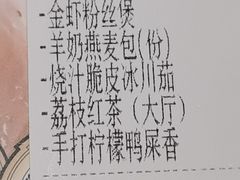 -金虾粉丝煲
-羊奶燕麦包(份)
-烧汁脆皮冰川茄
-荔枝红茶（大厅）
-手打柠檬鸭屎香